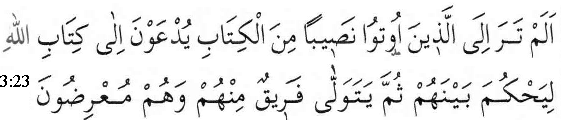 اَلَمْ تَرَ اِلَى الَّذ۪ينَ اُو۫تُوا نَص۪يباً مِنَ الْكِتَابِ يُدْعَوْنَ اِلٰى كِتَابِ اللّٰهِ
3:23 لِيَحْكُمَ بَيْنَهُمْ ثُمَّ يَتَوَلّٰى فَر۪يقٌ مِنْهُمْ وَهُمْ مُعْرِضُونَ